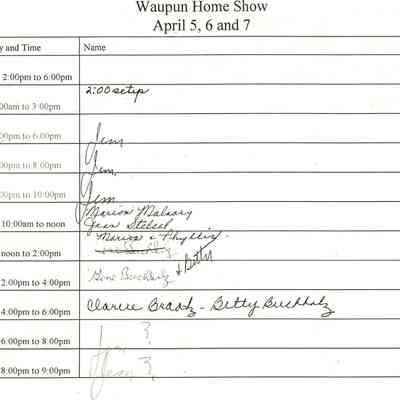 Waupun Home Show
April 5, 6 and 7
y and Time Name
2:00pm to 6:00pm
2:00 setup
00am to 3:00pm
00pm to 6:00pm
Jim
00pm to 8:00pm
Jim
00pm to 10:00pm
Jim
Marion
10:00am to noon
Jean
Marion & Phyllis
noon to 2:00pm
2:00pm to 4:00pm Gene Buchholz & Betty
4:00pm to 6:00pm Clarice Braatz - Betty Buchholz
6:00pm to 8:00pm Jim ?
8:00pm to 9:00pm Jim ?